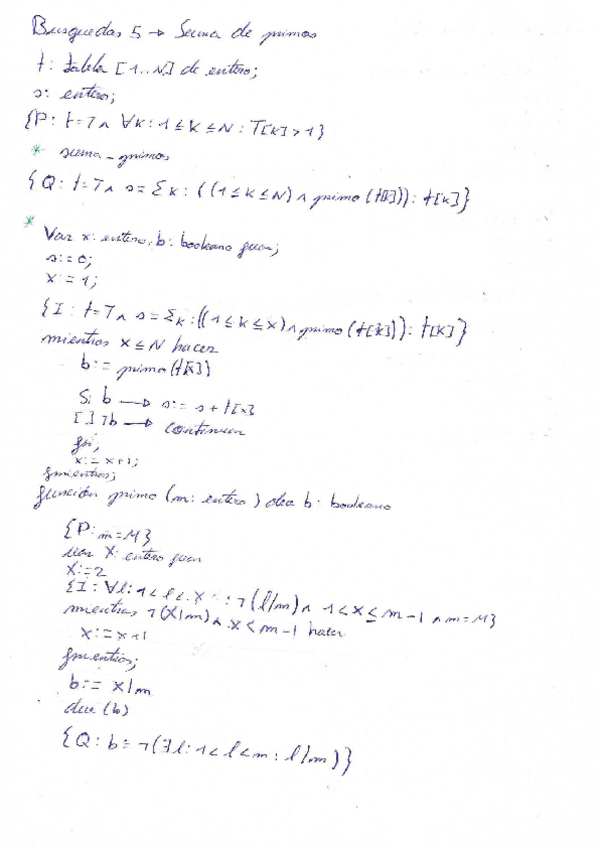 Busquedas 5 → Suma de primos
t: tabla [1..N] de entero;
s: entero;
{P: t=T ∧ ∀k: 1≤k≤N: T[k]>1}
* suma_primos
{Q: t=T ∧ s=Σk: ((1≤k≤N) ∧ primo(t[k])): t[k]}
*
Var x: entero, b: booleano fvar;
s:=0;
x:=1;
{I: t=T ∧ s=Σk:((1≤k≤x) ∧ primo(t[k])): t[k]}
mientras x≤N hacer
b:= primo(t[x])
Si b → s:= s+t[x]
[] ¬b → continuar
fsi;
x:=x+1;
fmientras;
función primo (m: entero) dev b: booleano
{P: m=M}
var x: entero fvar
x:=2
{I: ∀l: 1<l<x: ¬(l|m) ∧ 1<x≤m-1 ∧ m=M}
mientras ¬(x|m) ∧ x<m-1 hacer
x:=x+1
fmientras;
b:= x|m
dev (b)
{Q: b≡¬(∃l: 1<l<m: l|m)}